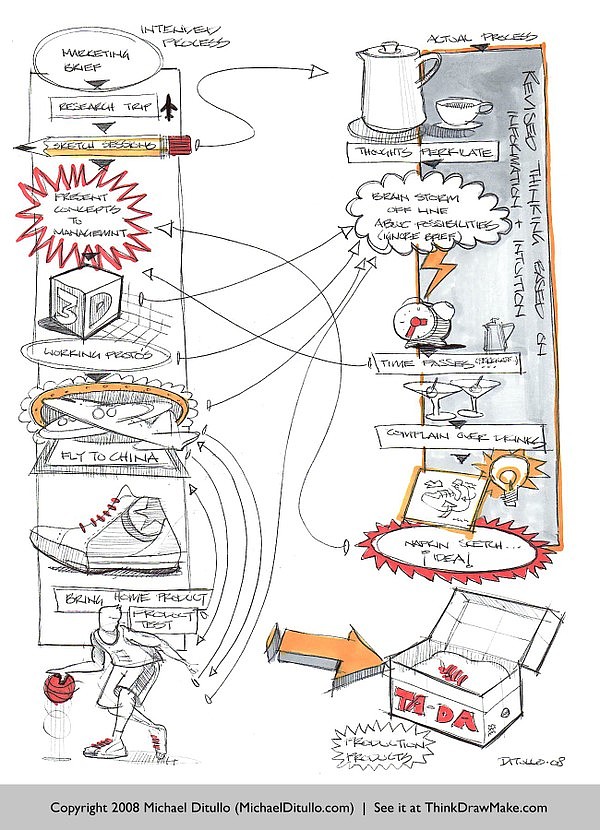 INTENDED
PROCESS
MARKETING
BRIEF
RESEARCH TRIP
SKETCH SESSIONS
PRESENT
CONCEPTS
TO
MANAGEMENT
3D
WORKING PROTOS
FLY TO CHINA
BRING HOME PRODUCT
PRODUCT
TEST
ACTUAL PROCESS
THOUGHTS PERKULATE
BRAIN STORM
OFF LINE
ABOUT POSSIBILITIES
(IGNORE BRIEF)
REVISED THINKING BASED ON
INFORMATION + INTUITION
TIME PASSES
COMPLAIN OVER DRINKS
NAPKIN SKETCH...
¡IDEA!
TA-DA
PRODUCTION
PRODUCTS
DITULLO.08
Copyright 2008 Michael Ditullo (MichaelDitullo.com) | See it at ThinkDrawMake.com